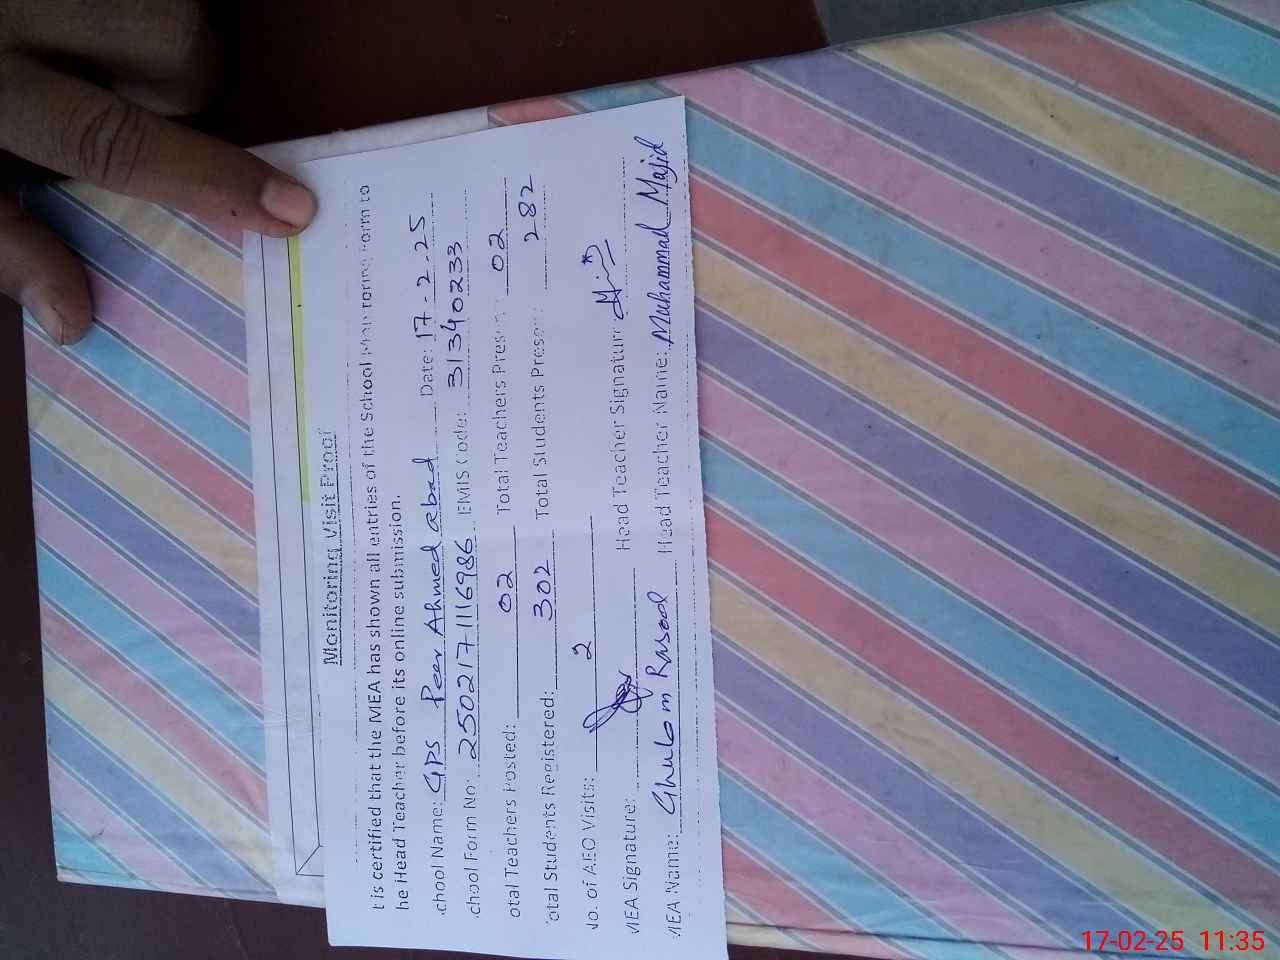 Monitoring Visit Proof
t is certified that the MEA has shown all entries of the School Monitoring Form to
he Head Teacher before its online submission.
chool Name: GPS Peer Ahmed abad Date: 17-2-25
chool Form No: 2502171116986 EMIS Code: 31340233
otal Teachers Posted: 02 Total Teachers Present: 02
otal Students Registered: 302 Total Students Present: 282
No. of AEO Visits: 2
MEA Signature: Head Teacher Signature:
MEA Name: Ghulam Rasool Head Teacher Name: Muhammad Majid
17-02-25 11:35